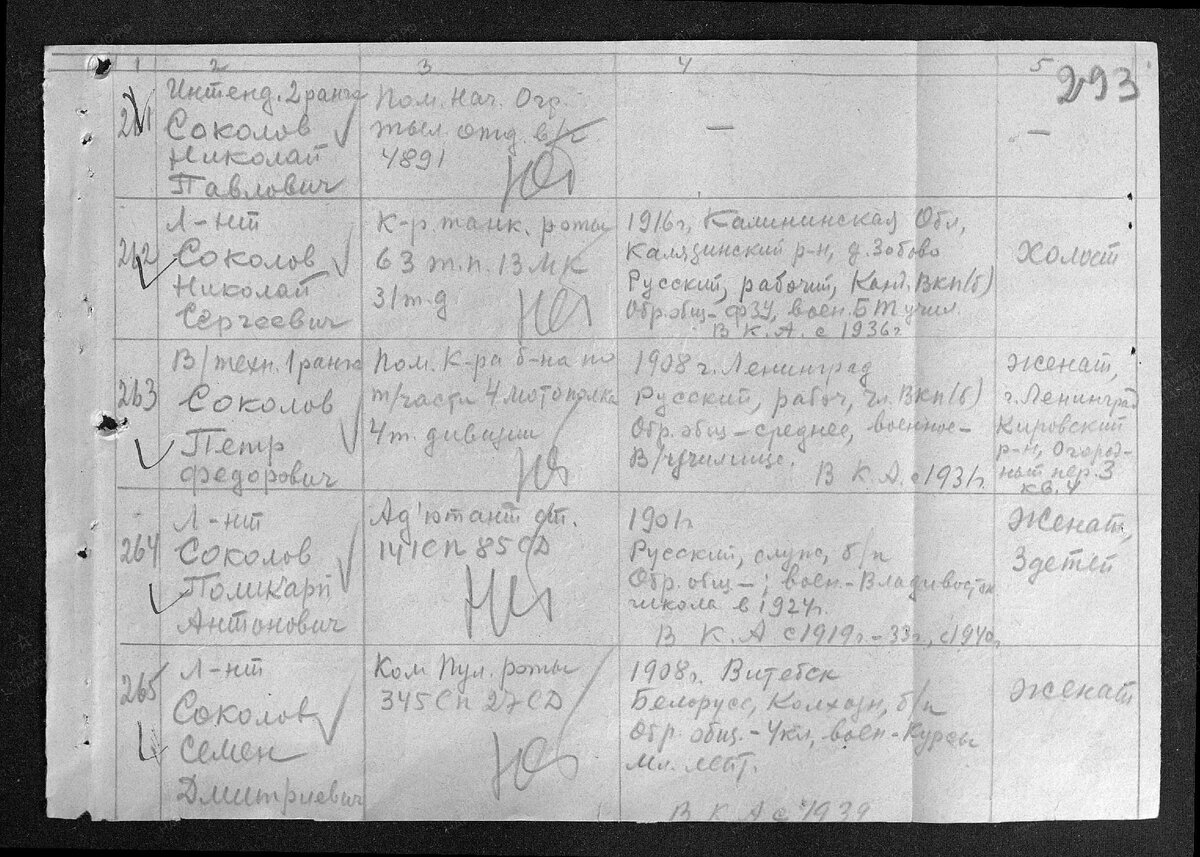 1 2 3 4 5
293
261
Интенд. 2 ранга
Соколов
Николай
Павлович
Пом. Нач. Огр.
тыл. отд. в/ч
4891
—
—
262
Л-нт
Соколов
Николай
Сергеевич
К-р танк. роты
63 т.п. 13 МК
31 т.д
1916г, Калининская Обл,
Калязинский р-н, д. Зобово
Русский, рабочий, Канд. Вкп(б)
Обр. общ - ФЗУ, воен. БТ учил.
В К. А. с 1936г
Холост
263
В/техн. 1 ранга
Соколов
Петр
Федорович
Пом. К-ра б-на по
т/части 4 мотополка
4 т. дивизии
1908 г. Ленинград
Русский, рабоч, чл. Вкп(б)
Обр. общ - среднее, военное -
В/училище.
В К. А. с 1931г.
Женат,
г. Ленинград
Кировский
р-н, Огород-
ный пер. 3
кв. 4
264
Л-нт
Соколов
Поликарп
Антонович
Ад'ютант ст.
141 СП 85 СД
1901г
Русский, служ, б/п
Обр. общ - ; воен. - Владивосток
школа в 1924г.
В К. А с 1919г. - 33г., с 1940г
Женат,
3 детей
265
Л-нт
Соколов
Семен
Дмитриевич
Ком Пул. роты
345 СП 27 СД
1908г. Витебск
Белорусс, Колхозн, б/п
Обр. общ. - 4 кл, воен - Курсы
Мл. лейт.
В К А с 1939
Женат